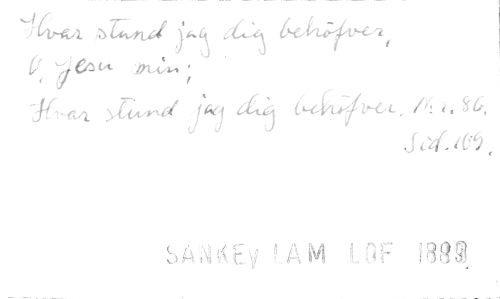 Hvar stund jag dig behöfver,
O, Jesu min;
Hvar stund jag dig behöfver. N:r. 86.
Sid. 109.
SANKEy LAM LOF 1889